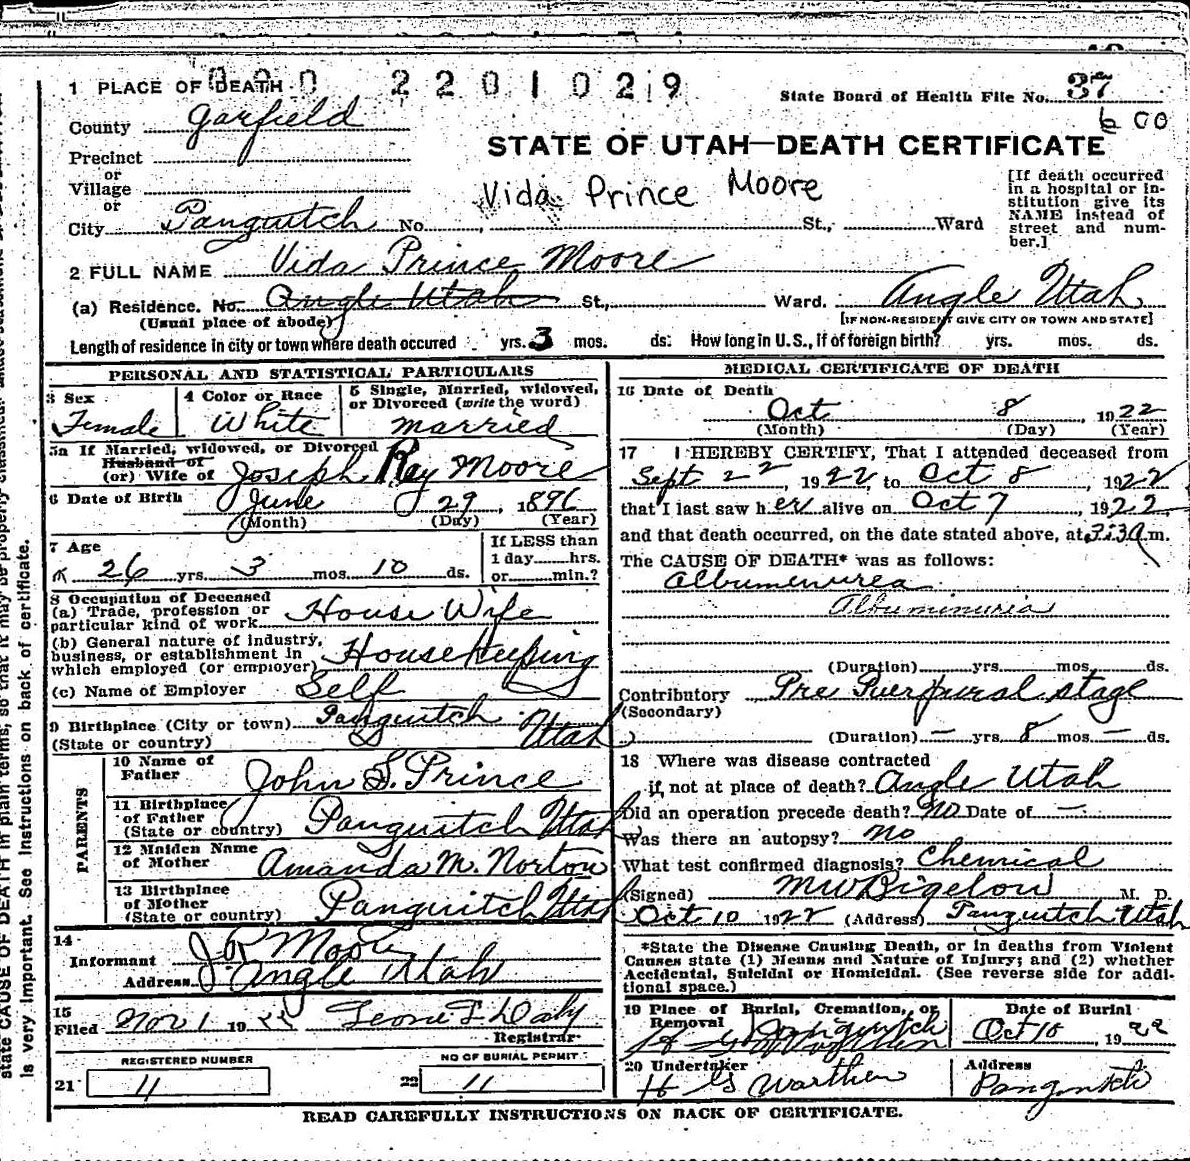 1 PLACE OF DEATH
2201029
State Board of Health File No. 37
600
County Garfield
STATE OF UTAH—DEATH CERTIFICATE
Precinct
or
Village
or
Vida Prince Moore
[If death occurred in a hospital or institution give its NAME instead of street and number.]
City Panguitch No. St., Ward
2 FULL NAME Vida Prince Moore
(a) Residence. No. Angle Utah St., Ward. Angle Utah
(Usual place of abode) [IF NON-RESIDENT GIVE CITY OR TOWN AND STATE]
Length of residence in city or town where death occured yrs. 3 mos. ds. How long in U.S., if of foreign birth? yrs. mos. ds.
PERSONAL AND STATISTICAL PARTICULARS
3 Sex
Female
4 Color or Race
White
5 Single, Married, widowed,
or Divorced (write the word)
Married
5a If Married, widowed, or Divorced
Husband of
(or) Wife of Joseph Ray Moore
6 Date of Birth June 29, 1896
(Month) (Day) (Year)
7 Age
26 yrs. 3 mos. 10 ds.
If LESS than
1 day hrs.
or min.?
8 Occupation of Deceased
(a) Trade, profession or
particular kind of work House Wife
(b) General nature of industry,
business, or establishment in
which employed (or employer) Housekeeping
(c) Name of Employer Self
9 Birthplace (City or town) Panguitch
(State or country) Utah
PARENTS
10 Name of
Father John S. Prince
11 Birthplace
of Father
(State or country) Panguitch Utah
12 Maiden Name
of Mother Amanda M. Norton
13 Birthplace
of Mother
(State or country) Panguitch Utah
14
Informant J. R. Moore
Address Angle Utah
15
Filed Nov 1 1922
Registrar
REGISTERED NUMBER
21 11
NO OF BURIAL PERMIT
22 11
MEDICAL CERTIFICATE OF DEATH
16 Date of Death
Oct 8, 1922
(Month) (Day) (Year)
17 I HEREBY CERTIFY, That I attended deceased from
Sept 22, 1922, to Oct 8, 1922
that I last saw her alive on Oct 7, 1922
and that death occurred, on the date stated above, at m.
The CAUSE OF DEATH* was as follows:
Albumenurea
Albuminuria
(Duration) yrs. mos. ds.
Contributory Pre Puerpural stage
(Secondary)
(Duration) — yrs. 8 mos. — ds.
18 Where was disease contracted
if not at place of death? Angle Utah
Did an operation precede death? No Date of —
Was there an autopsy? No
What test confirmed diagnosis? Chemical
(Signed) M W Bigelow M. D.
Oct 10 1922 (Address) Panguitch Utah
*State the Disease Causing Death, or in deaths from Violent
Causes state (1) Means and Nature of Injury; and (2) whether
Accidental, Suicidal or Homicidal. (See reverse side for additional space.)
19 Place of Burial, Cremation, or
Removal Panguitch
Date of Burial
Oct 10, 1922
20 Undertaker
H G Worthen
Address
Panguitch
READ CAREFULLY INSTRUCTIONS ON BACK OF CERTIFICATE.
state CAUSE OF DEATH in plain terms, so that it may be properly classified.
is very important. See instructions on back of certificate.